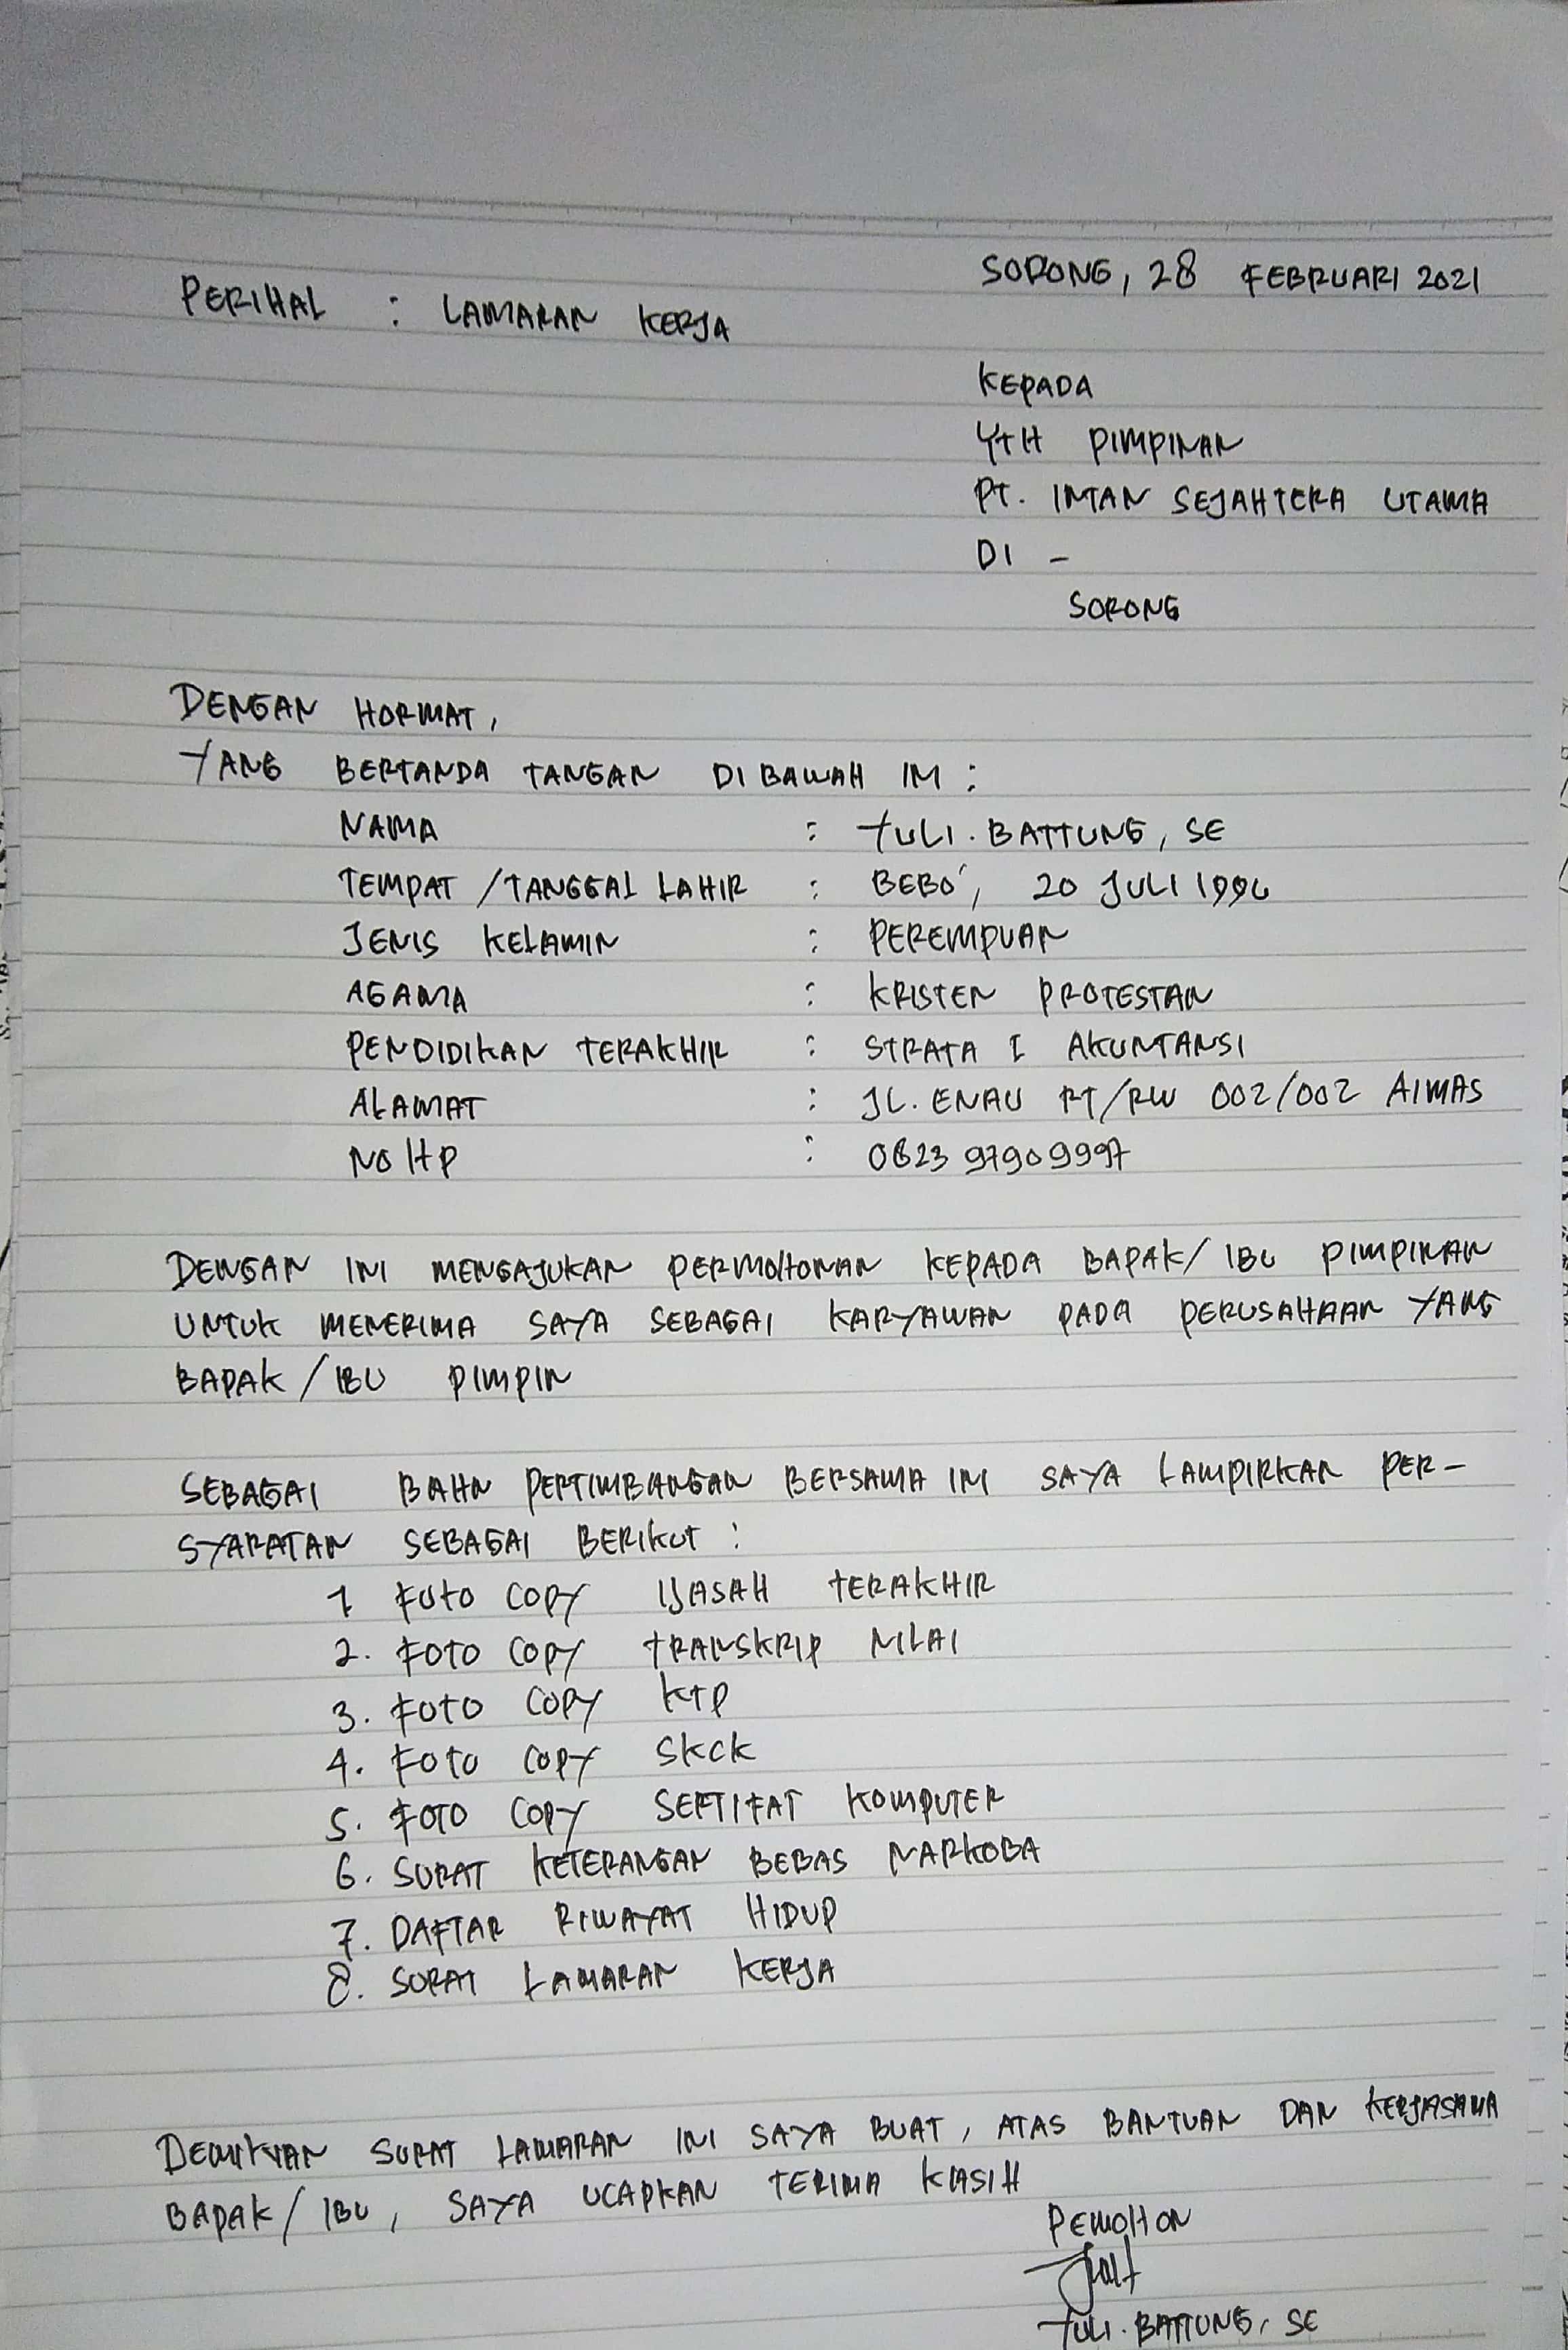 SORONG, 28 FEBRUARI 2021
PERIHAL : LAMARAN KERJA
KEPADA
YTH PIMPINAN
PT. INTAN SEJAHTERA UTAMA
DI -
SORONG
DENGAN HORMAT,
YANG BERTANDA TANGAN DI BAWAH INI :
NAMA : YULI. BATTUNG, SE
TEMPAT / TANGGAL LAHIR : BEBO', 20 JULI 1996
JENIS KELAMIN : PEREMPUAN
AGAMA : KRISTEN PROTESTAN
PENDIDIKAN TERAKHIR : STRATA I AKUNTANSI
ALAMAT : JL. ENAU RT/RW 002/002 AIMAS
NO HP : 0823 97909997
DENGAN INI MENGAJUKAN PERMOHONAN KEPADA BAPAK/ IBU PIMPINAN
UNTUK MENERIMA SAYA SEBAGAI KARYAWAN PADA PERUSAHAAN YANG
BAPAK / IBU PIMPIN
SEBAGAI BAHN PERTIMBANGAN BERSAMA INI SAYA LAMPIRKAN PER-
SYARATAN SEBAGAI BERIKUT :
1 FOTO COPY IJASAH TERAKHIR
2. FOTO COPY TRANSKRIP NILAI
3. FOTO COPY KTP
4. FOTO COPY SKCK
5. FOTO COPY SERTIFAT KOMPUTER
6. SURAT KETERANGAN BEBAS NARKOBA
7. DAFTAR RIWAYAT HIDUP
8. SURAT LAMARAN KERJA
DEMIKIAN SURAT LAMARAN INI SAYA BUAT, ATAS BANTUAN DAN KERJASAMA
BAPAK/ IBU, SAYA UCAPKAN TERIMA KASIH
PEMOHON
YULI. BATTUNG, SE